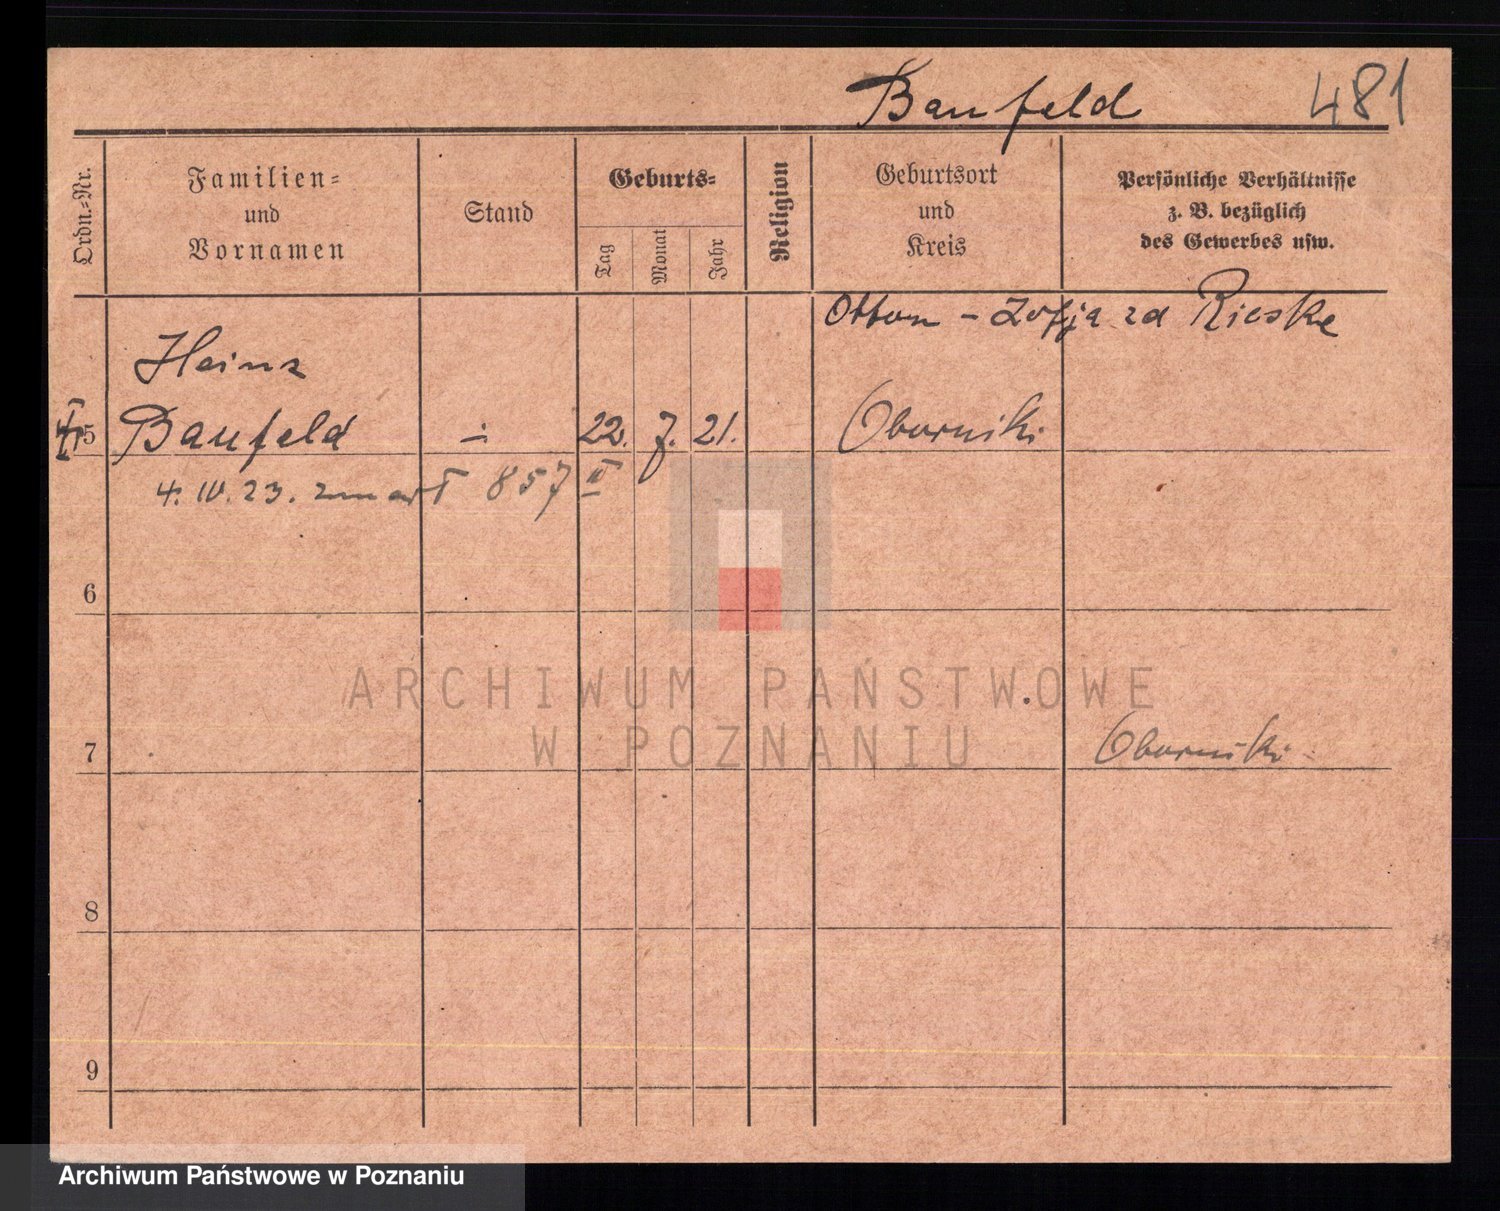 Baufeld 481
Ordn.=Nr.
Familien=
und
Vornamen
Stand
Geburts=
Tag
Monat
Jahr
Religion
Geburtsort
und
Kreis
Persönliche Verhältnisse
z. B. bezüglich
des Gewerbes usw.
Otton - Zofja zd Rieske
Heinz
5 Baufeld - 22. 7. 21. Oborniki
4. IV. 23. zmarł 857 II
6
7 Oborniki
8
9
ARCHIWUM PAŃSTWOWE
W POZNANIU
Archiwum Państwowe w Poznaniu